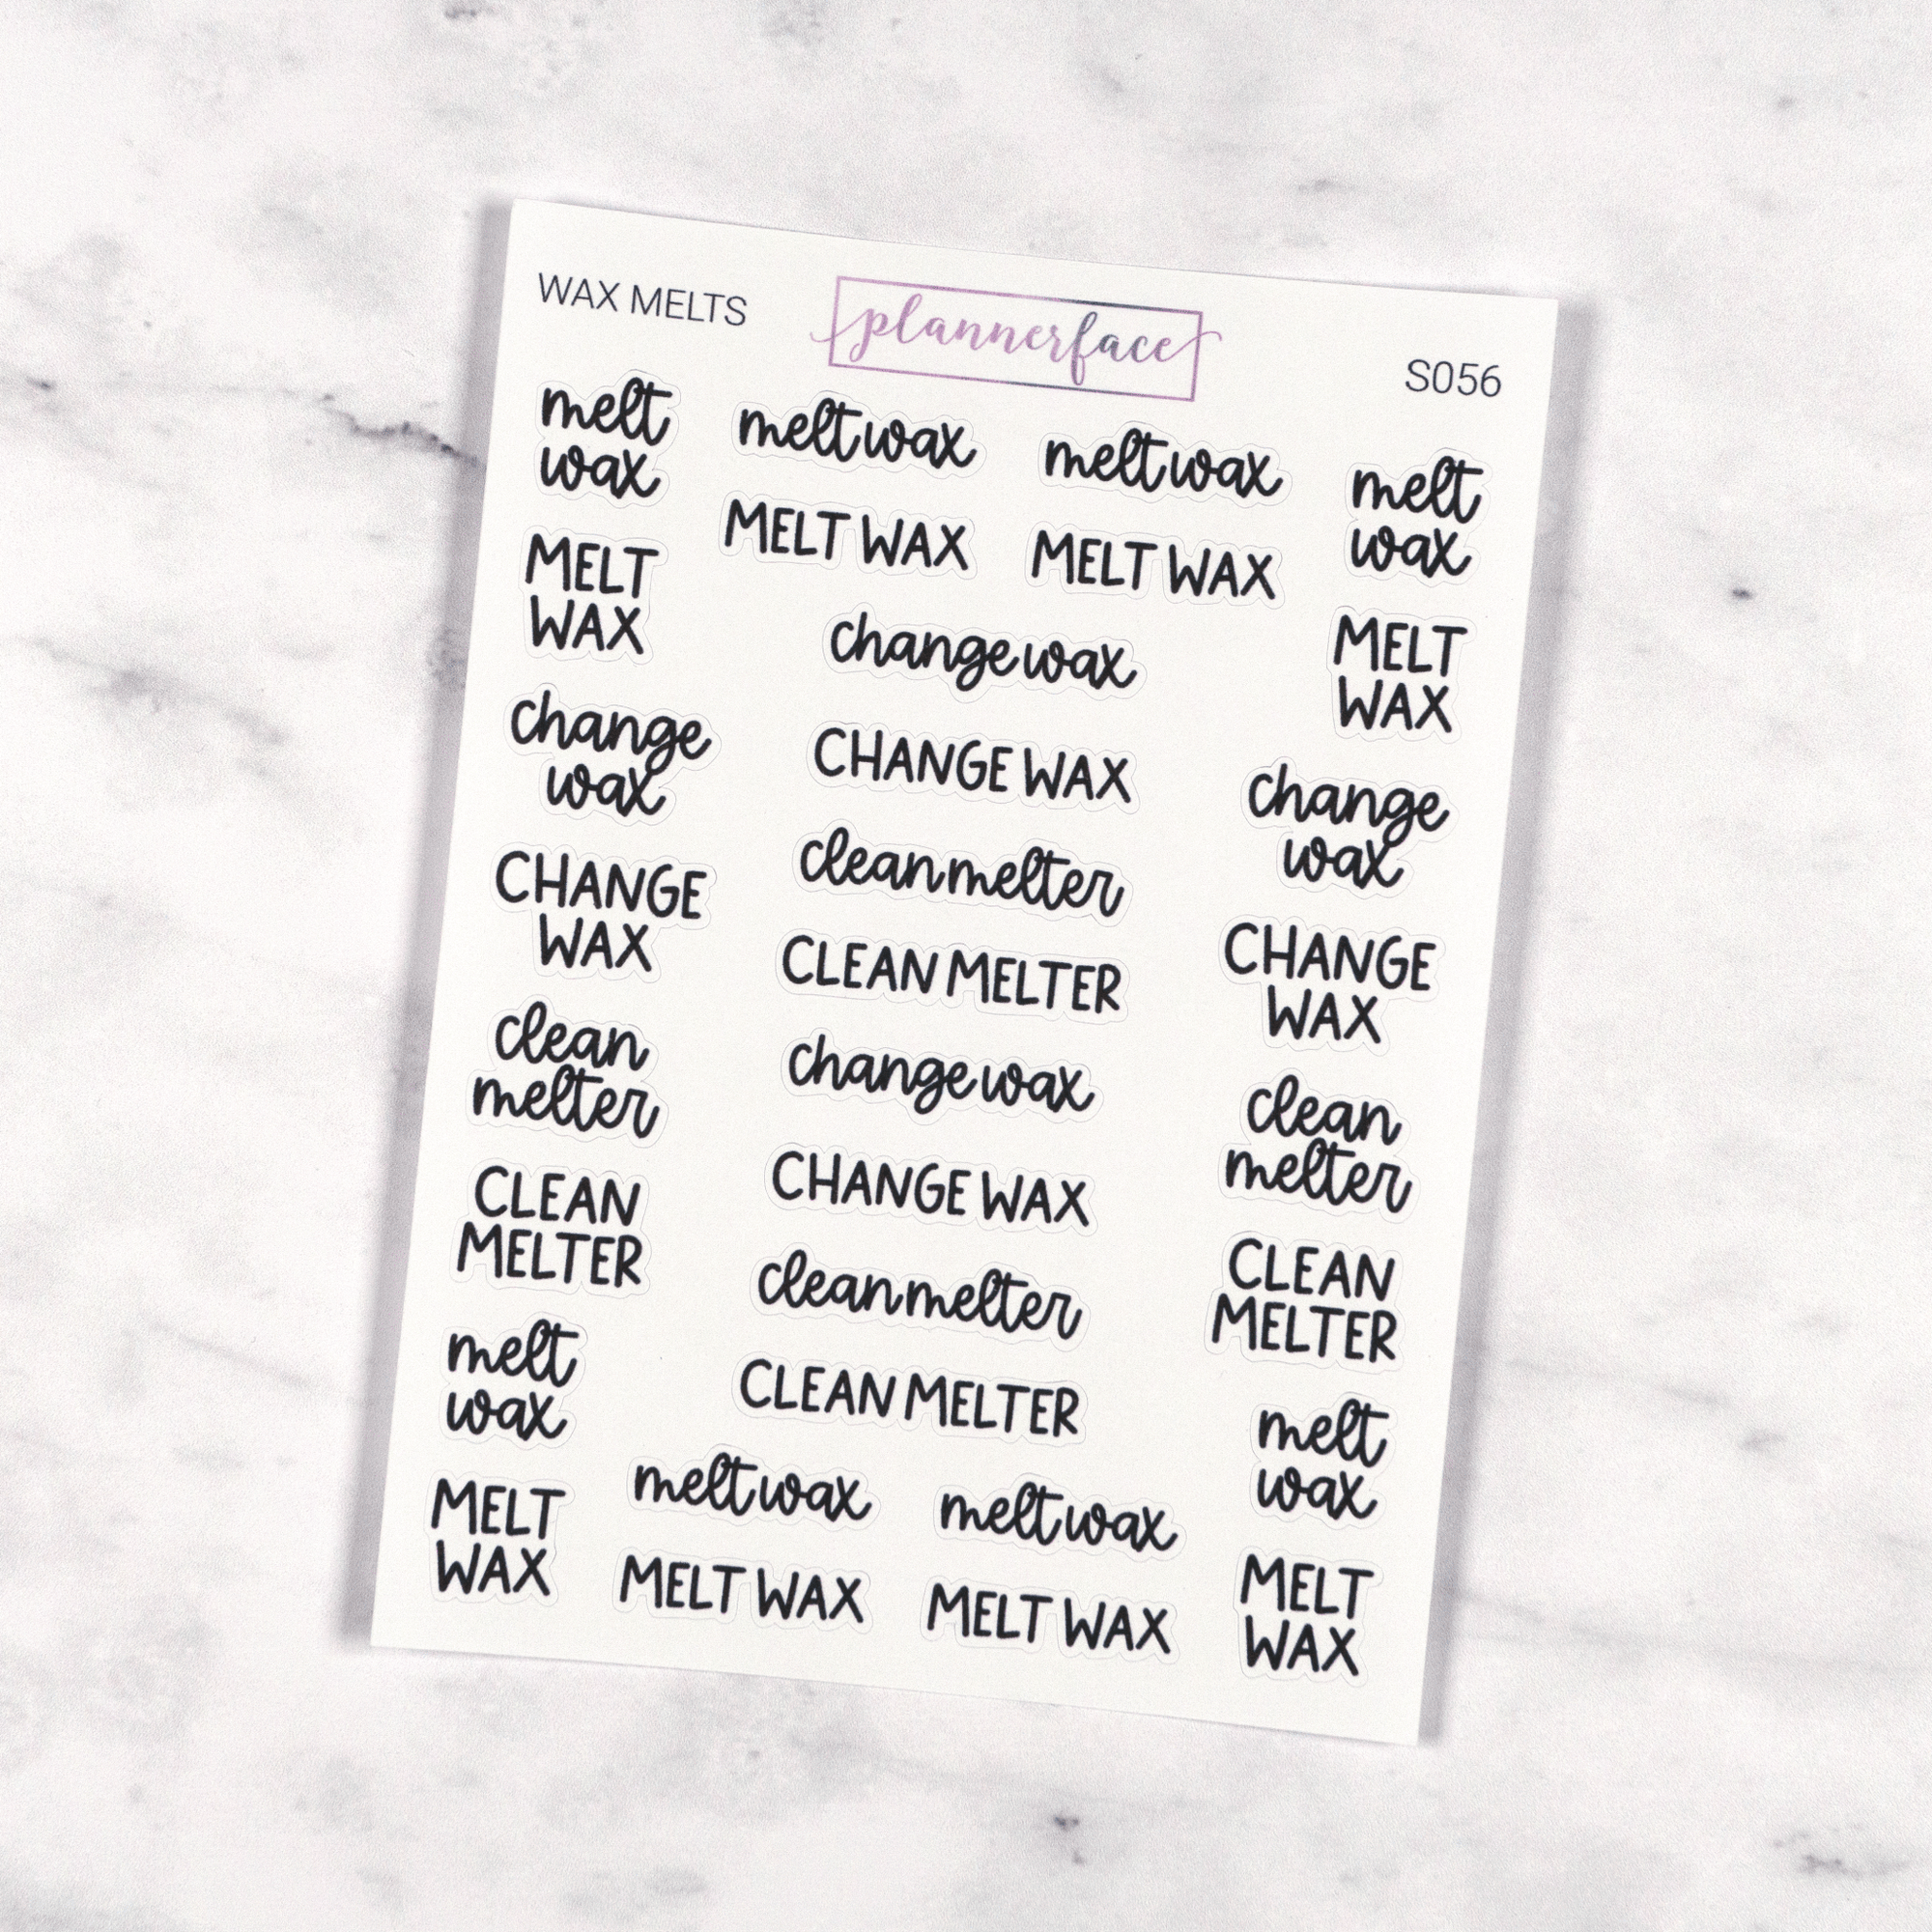 WAX MELTS
plannerface
S056
melt
wax
meltwax
meltwax
melt
wax
MELT
WAX
MELT WAX
MELT WAX
MELT
WAX
change
wax
change wax
change
wax
CHANGE
WAX
CHANGE WAX
CHANGE
WAX
clean
melter
clean melter
CLEAN MELTER
clean
melter
CLEAN
MELTER
change wax
CHANGE WAX
CLEAN
MELTER
clean melter
CLEAN MELTER
melt
wax
melt wax
melt wax
melt
wax
MELT
WAX
MELT WAX
MELT WAX
MELT
WAX